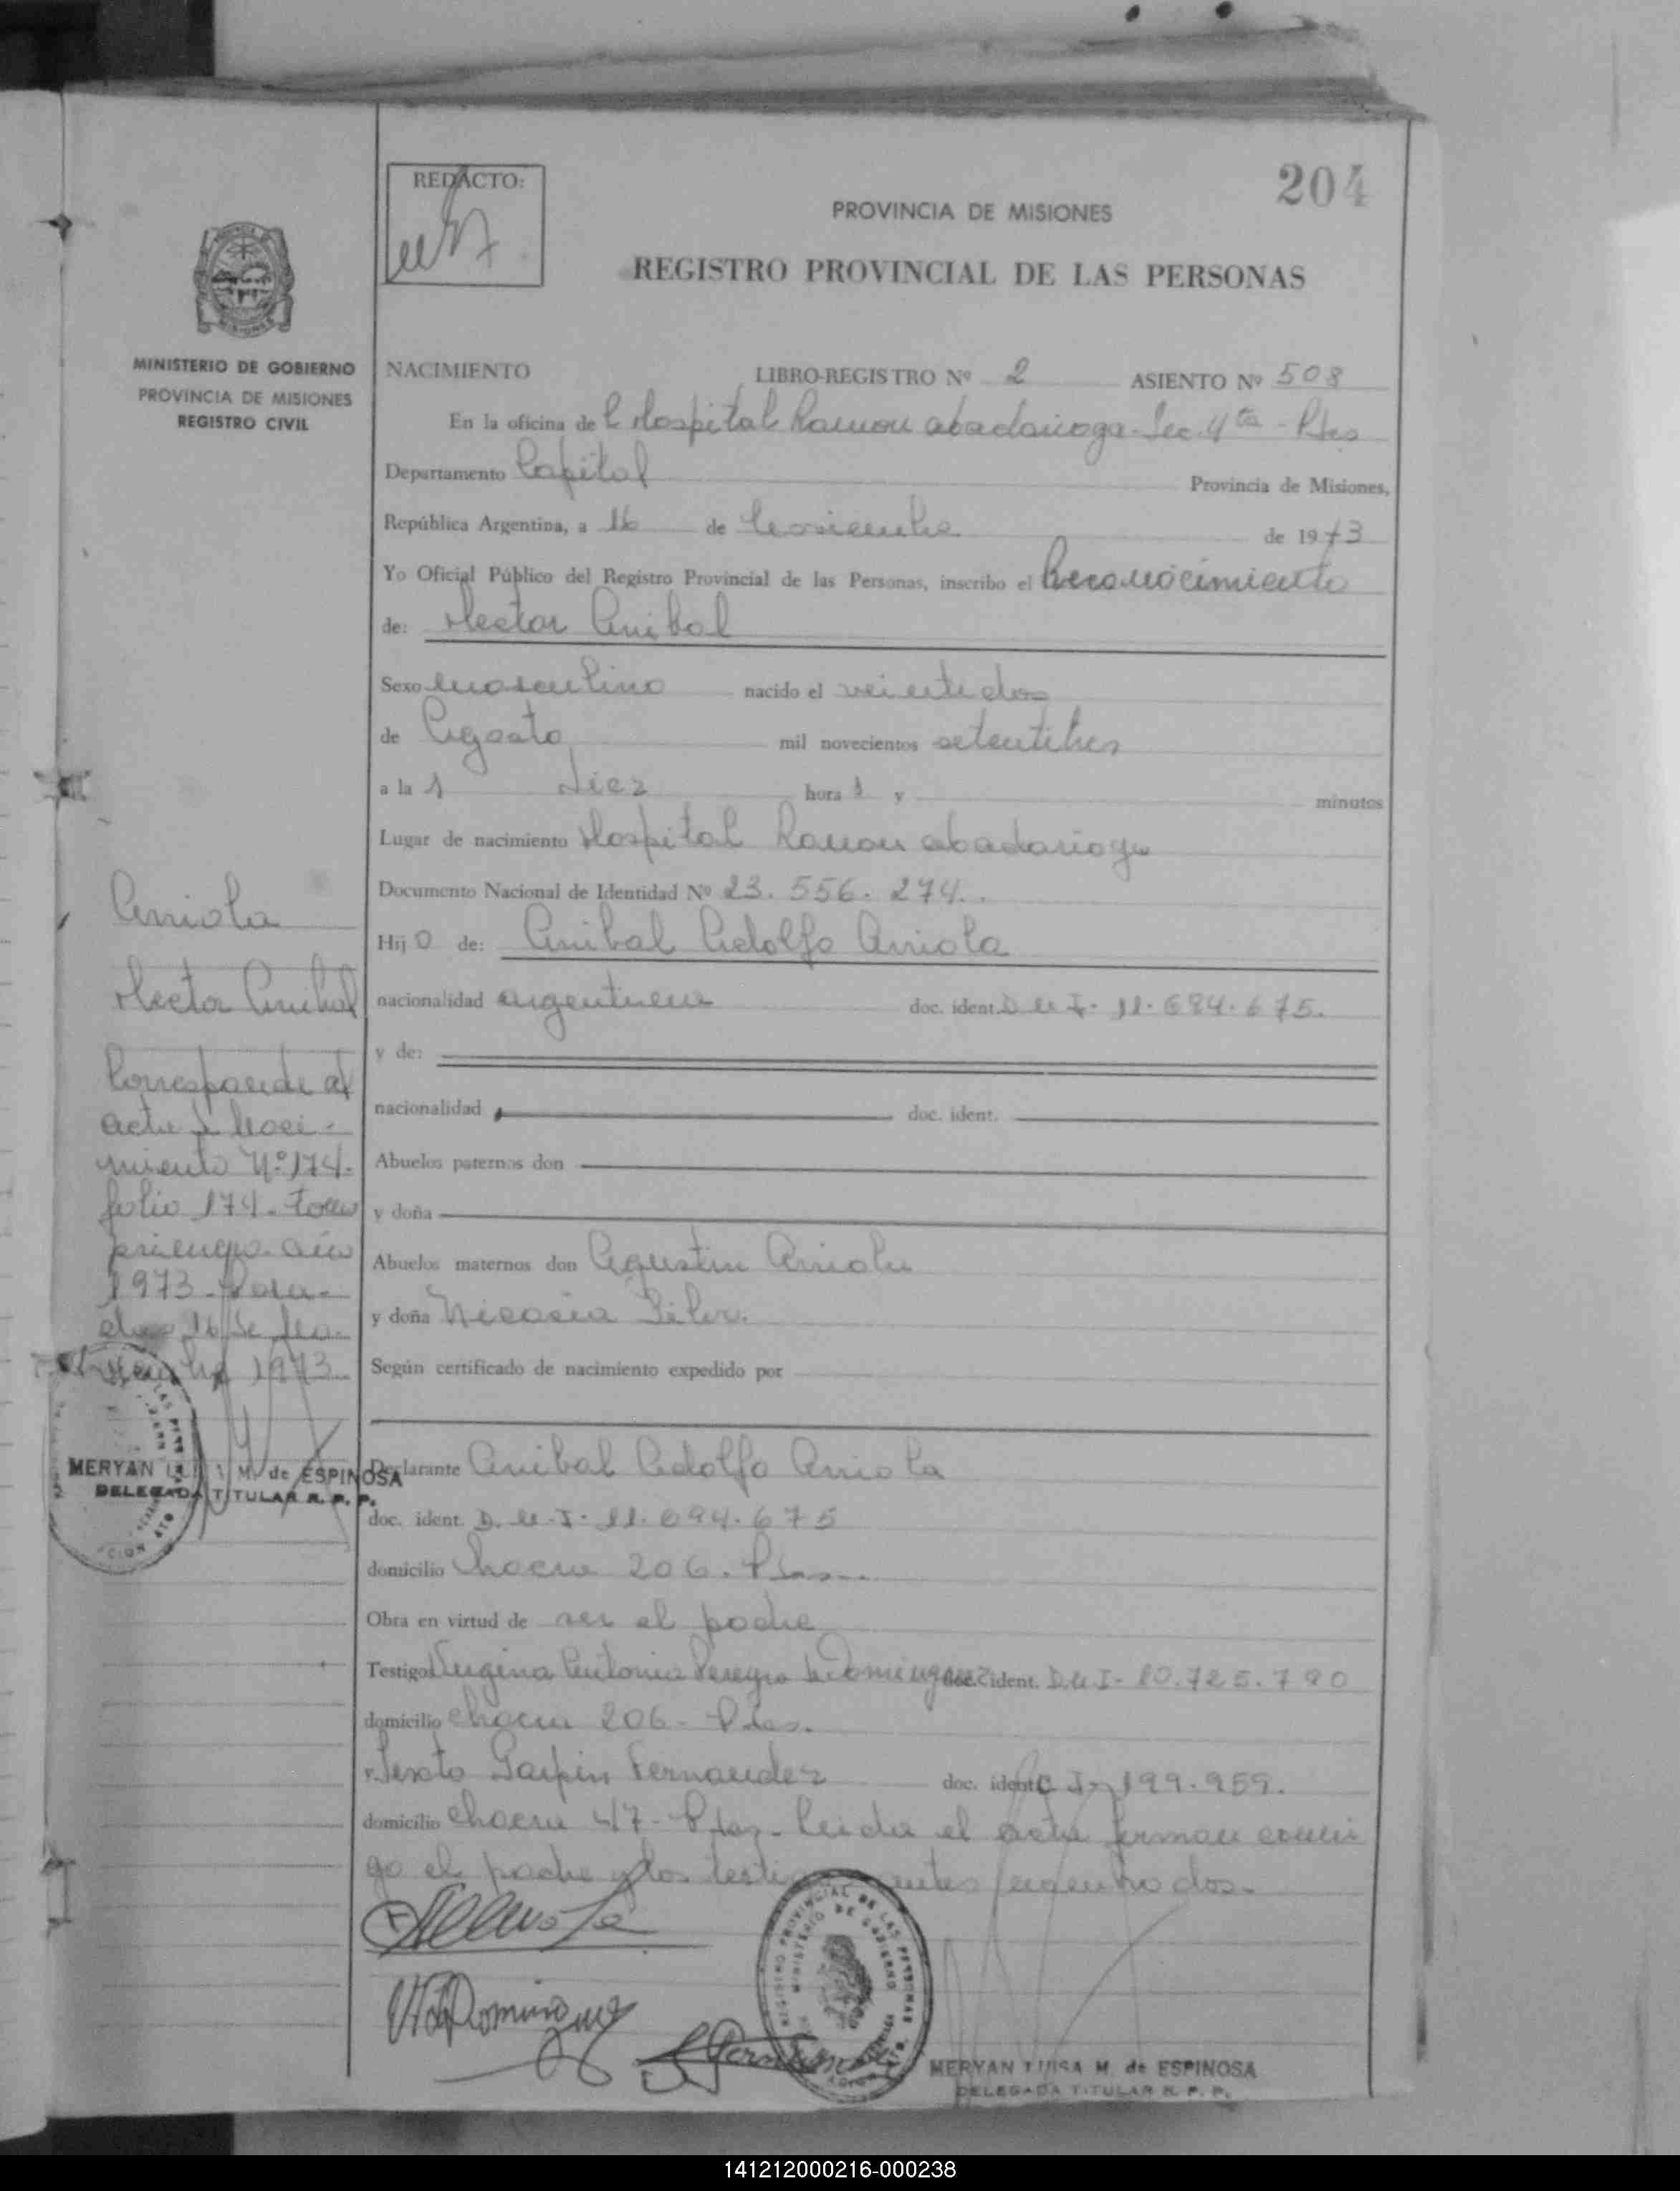 204
REDACTO:
PROVINCIA DE MISIONES
REGISTRO PROVINCIAL DE LAS PERSONAS
MINISTERIO DE GOBIERNO
PROVINCIA DE MISIONES
REGISTRO CIVIL
NACIMIENTO LIBRO-REGISTRO Nº 2 ASIENTO Nº 508
En la oficina de l Hospital Ramon abadarioga - Sec. 4ta - Pdas
Departamento Capital Provincia de Misiones,
República Argentina, a 16 de Noviembre de 1973
Yo Oficial Público del Registro Provincial de las Personas, inscribo el Reconocimiento
de: Hector Anibal
Sexo masculino nacido el veintidos
de Agosto mil novecientos setentitres
a la s diez hora s y minutos
Lugar de nacimiento Hospital Ramon abadarioga
Documento Nacional de Identidad Nº 23.556.274.
Hij o de: Anibal Adolfo Arriola
nacionalidad argentina doc. ident. D.N.I. 11.694.675.
y de:
nacionalidad doc. ident.
Abuelos paternos don
y doña
Abuelos maternos don Agustin Arriola
y doña Nicasia
Según certificado de nacimiento expedido por
Declarante Anibal Adolfo Arriola
doc. ident. D.N.I. 11.694.675
domicilio Chacra 206. Pdas.
Obra en virtud de ser el padre
Testigos Antonia Pereyra de Dominguez doc. ident. D.N.I. 10.725.790
domicilio Chacra 206 - Pdas.
y Fernandez doc. ident. C.I. 199.959.
domicilio Chacra 47 - Pdas. Leida el acta firman conmi
go el padre y los testigos antes
Arriola
Hector Anibal
Corresponde al
acta de Naci-
miento Nº 174-
folio 174. tomo
primero año
1973. Posa-
das 16 de No-
viembre 1973.
MERYAN LUISA M. de ESPINOSA
DELEGADA TITULAR R. P. P.
REGISTRO PROVINCIAL DE LAS PERSONAS
MINISTERIO DE GOBIERNO
MERYAN LUISA M. de ESPINOSA
DELEGADA TITULAR R. P. P.
141212000216-000238